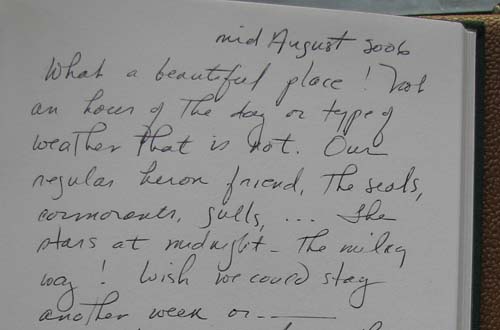 mid August 2006
What a beautiful place! Not
an hour of the day or type of
weather that is not. Our
regular heron friend, The seals,
cormorants, gulls, ... The
stars at midnight - The milky
way! Wish we could stay
another week or ———